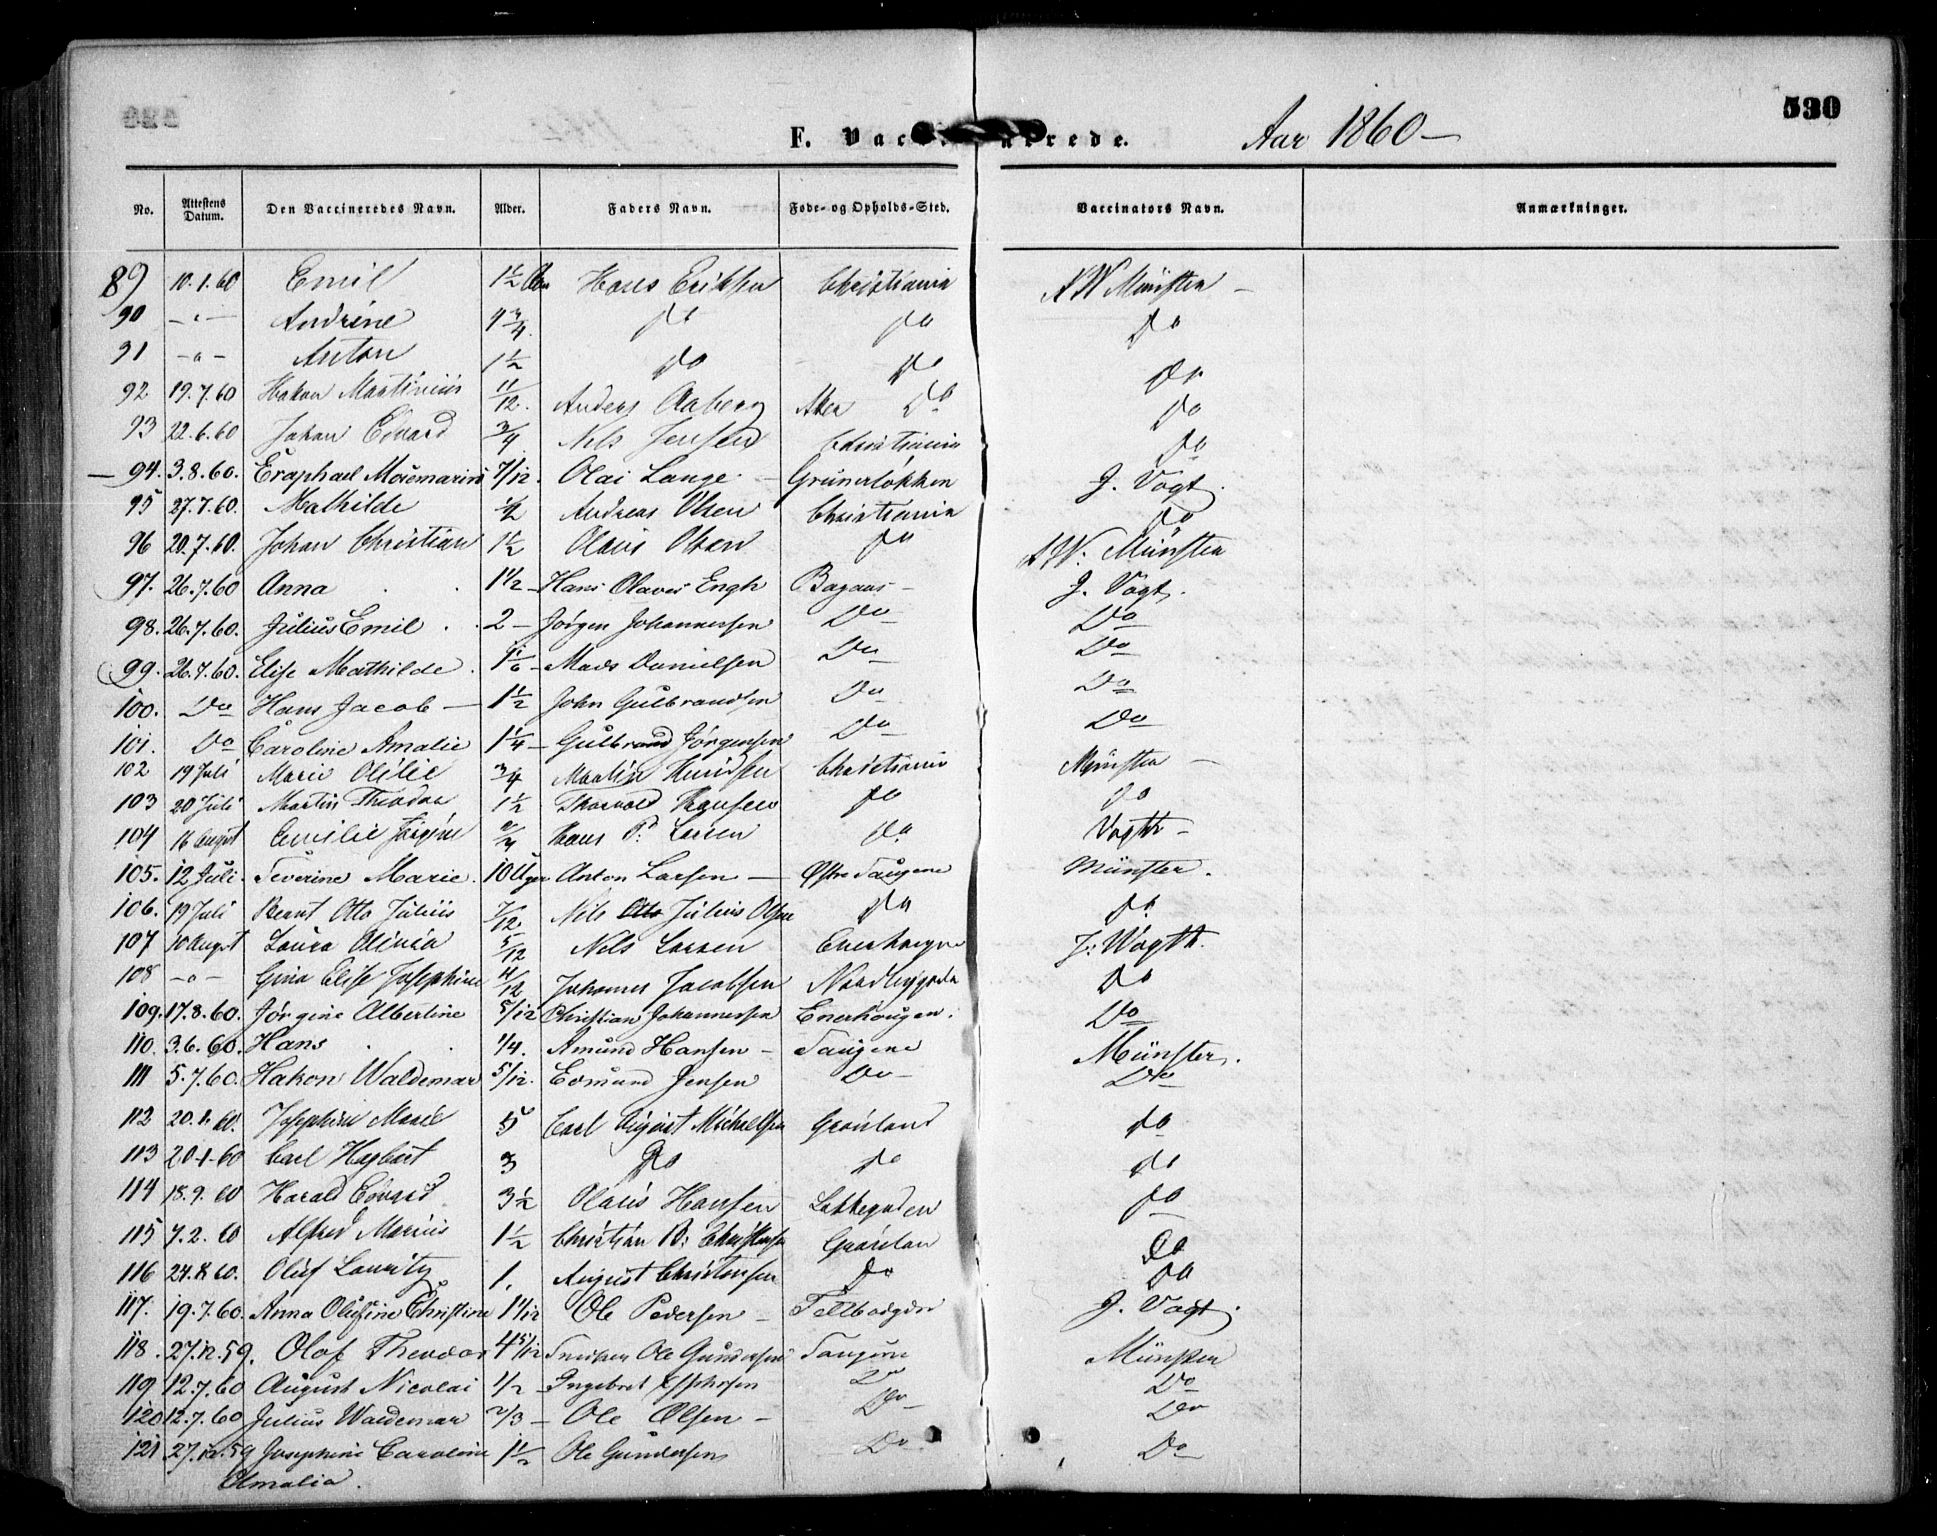 530
F. Vac rede. Aar 1860 —
No. Attestens Datum. Den Vaccineredes Navn. Alder. Faders Navn. Føde- og Opholds-Sted. Vaccinators Navn. Anmærkninger.
89 10.1.60 Emil 1 1/2 Hans Eriksen Christiania Münster —
90 — " — Andrine 4 3/4. do do do
91 — " — Anton 1 1/2 do do do
92 19.7.60 Hakon Martinius 11/12. Anders Aaberg Aker do do
93 22.6.60 Johan Edvard 3/4 Nels Jensen Christiania do
— 94. 3.8.60. Eraphael 7/12. Olai Lange — Grünerløkken J. Vogt.
95 27.7.60. Mathilde 1/2 Andreas Olsen Christiania do
96 20.7.60. Johan Christian 1 1/2 Olaus Olsen do W. Münster
97. 26.7.60 Anna 1 1/2 — Hans Olaves Engh Bagaas — J. Vogt.
98. 26.7.60. Julius Emil 2 — Jørgen Johannessen Do Do
99. 26.7.60. Elise Mathilde 1 1/6 — Mads Danielsen Do Do
100. Do Hans Jacob — 1 1/2 John Gulbrandsen Do Do
101. Do Caroline Amalie 1 1/4 — Gulbrand Jørgensen Do Do
102 19 Juli Marie Otilie 3/4 Martin Knudsen Christiania Münster —
103 20 Juli Martin Theodor 1 1/2 Thorvald Hansen do do
104 16 August Emilie Jørgine Hans P: Larsen do. Vogth —
105. 12 Juli. Severine Marie. 10 Uger Anton Larsen — Østre Taugene Münster.
106. 19 Juli Bernt Otto Julius 7/12 Nils Otto Julius Olsen do do
107 10 August Laura Olivia 5/12 Nels Larsen Enerhaugen J. Wogth.
108 — " — Gina Elise Josephine 4/12 Johannes Jacobsen Nordbygada do
109. 17.8.60. Jørgine Albertine 5/12 Christian Johannessen Enerhougen. Do
110. 3.6.60. Hans 1/4. Amund Hansen — Taugene Münster.
111 5.7.60. Hakon Waldemar 5/12. Edmund Jensen Do — Do
112 20.1.60. Josephine Marie 5 Carl August Michaelsen Grønland do
113 20-1-60 Carl Hagbart 3 Do do do
114 18.9.60 Harald Edvard 3 1/2 Olaus Hansen Lakkegaden do
115 7.2.60 Alfred Marius 1 1/2 Christian B: Christensen Grønlan Do
116 24.8.60. Oluf Lauritz 1. August Christensen Do Do
117. 19.7.60. Anna Olufine Christine 1 1/12 Ole Pedersen — J. Vogt.
118. 27.12.59. Olaf Theodor 4 5/12 Snedker Ole Gundersen Taugene Münster
119 12.7.60 August Nicolai 1/2 — Ingebret Do Do
120 12.7.60 Julius Waldemar 2/3 — Ole Olsen — Do — Do
121 27.12.59 Josephine Caroline 1 1/2 Ole Gundersen Do Do
Amalia.